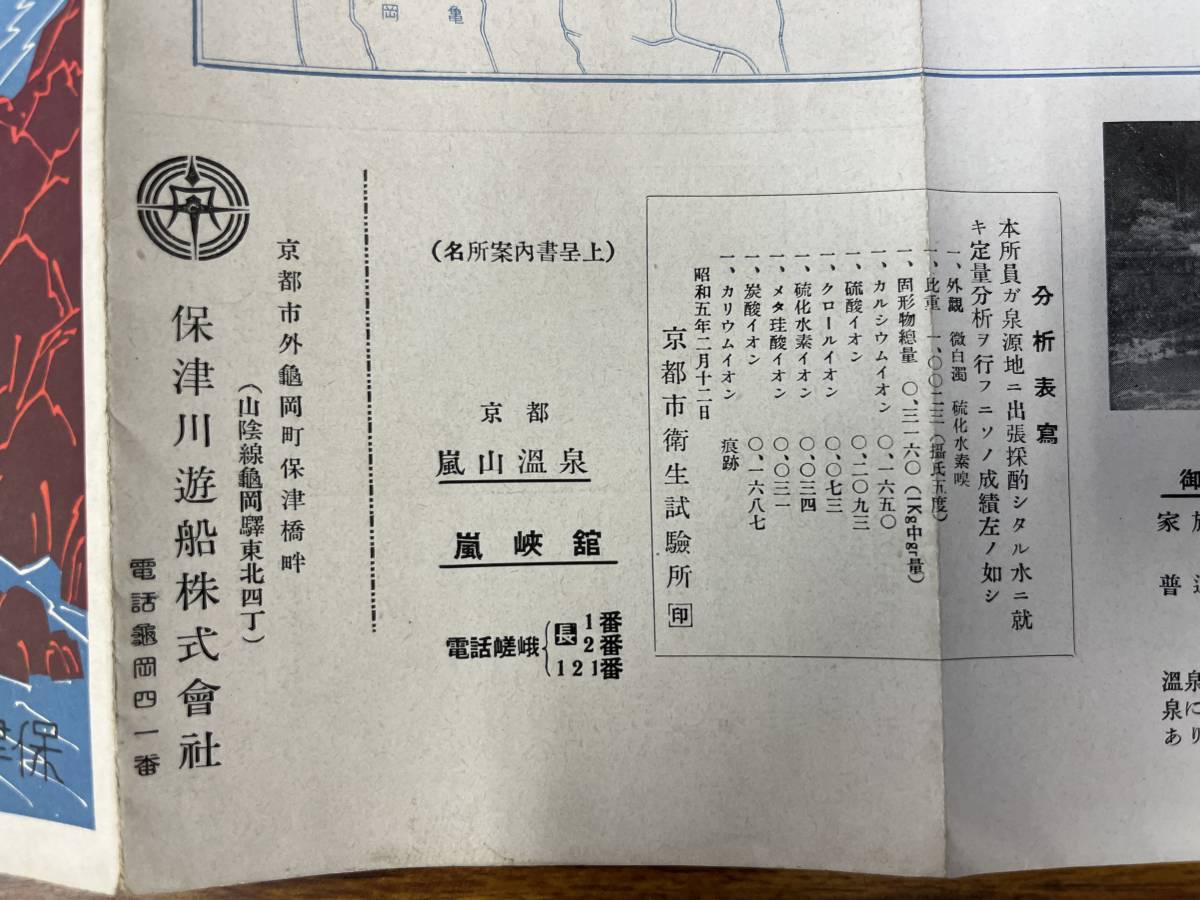 岡 亀
分析表寫
本所員ガ泉源地ニ出張採酌シタル水ニ就
キ定量分析ヲ行フニソノ成績左ノ如シ
一、外觀 微白濁 硫化水素嗅
一、比重 一、〇〇二三(攝氏五度)
一、固形物總量 〇、三一六〇(1Kg中gr量)
一、カルシウムイオン 〇、一六五〇
一、硫酸イオン 〇、二〇九三
一、クロールイオン 〇、〇七三
一、硫化水素イオン 〇、〇三四
一、メタ珪酸イオン 〇、〇三一
一、炭酸イオン 〇、一六八七
一、カリウムイオン 痕跡
昭和五年二月十二日
京都市衛生試驗所 印
(名所案內書呈上)
京都
嵐山溫泉
嵐峽舘
電話嵯峨 長 1番
2番
121番
京都市外龜岡町保津橋畔
(山陰線龜岡驛東北四丁)
保津川遊船株式會社
電話龜岡四一番
御
家族
普通
溫泉
泉に
あり
保津